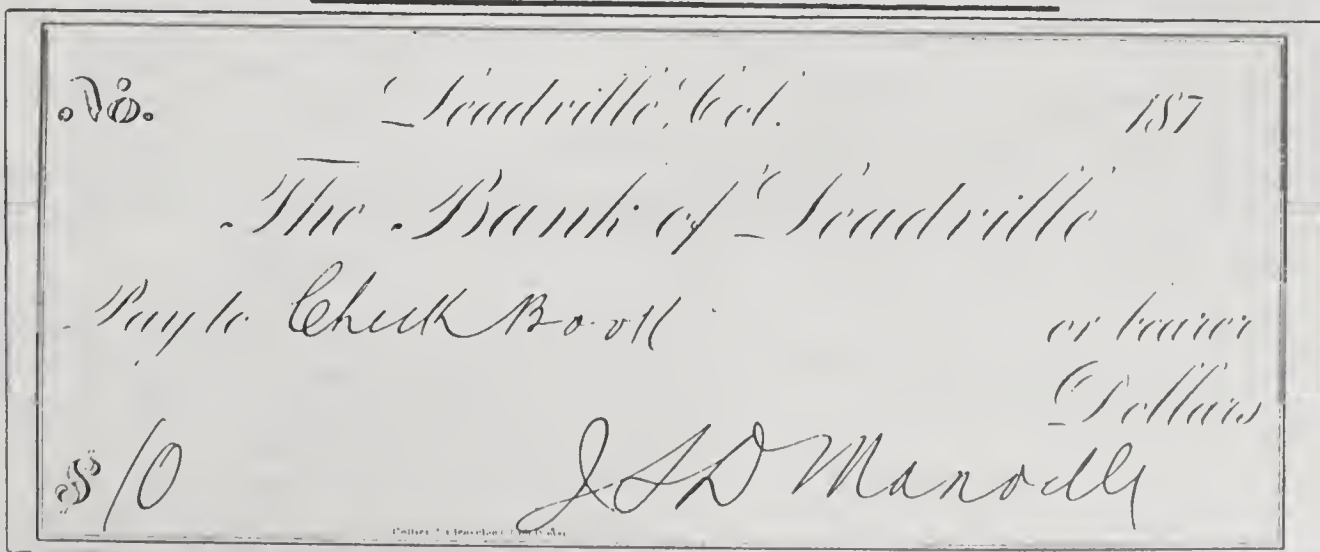 No. Leadville, Col. 187
The Bank of Leadville
Pay to Check Book or bearer
Dollars
$ 10 J S D Manville